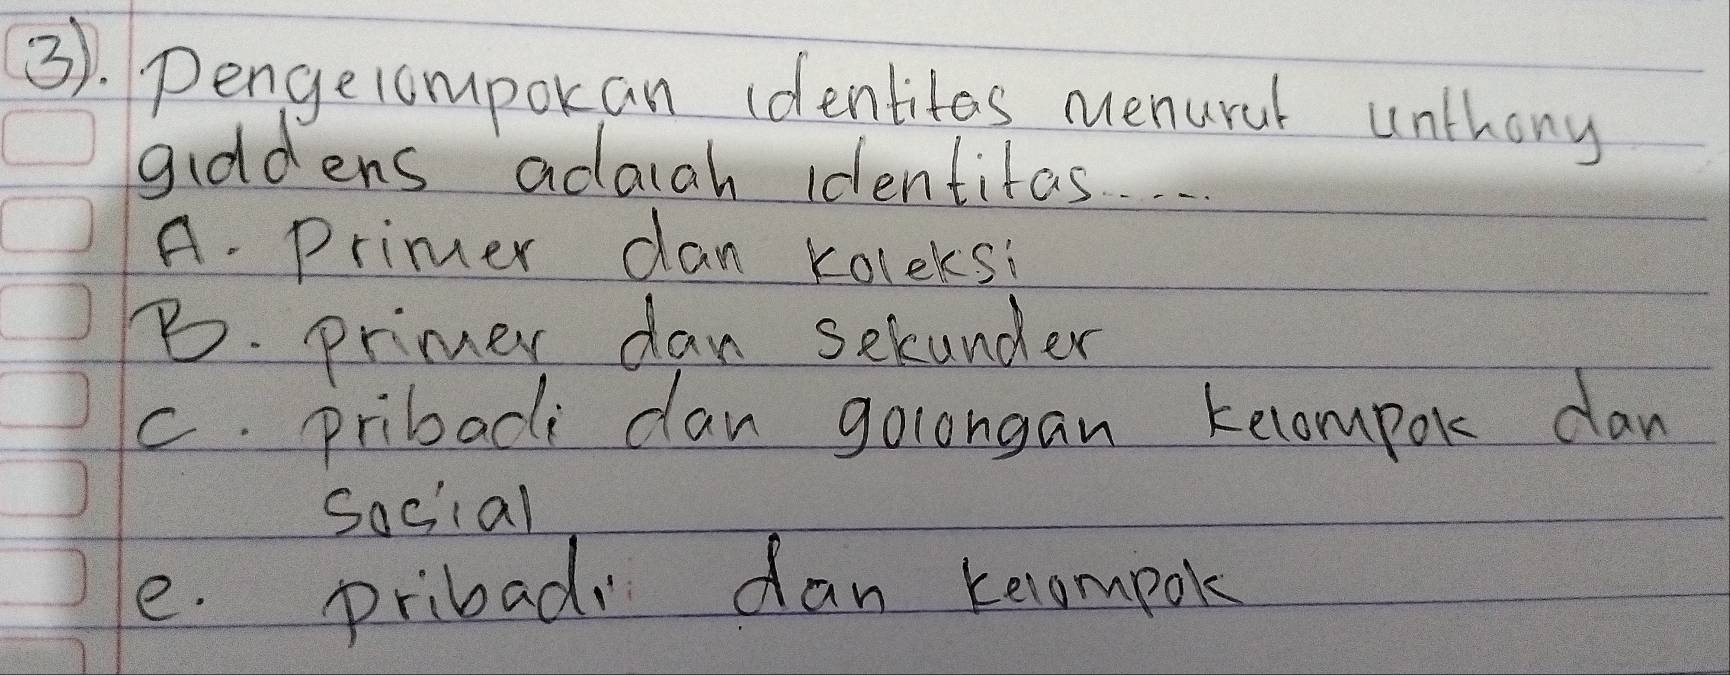 3). Pengelompokan identitas menurut unthony
giddens adalah identitas.....
A. Primer dan koleksi
B. primer dan sekunder
C. pribadi dan golongan kelompok dan
sosial
e. pribadi dan kelompok